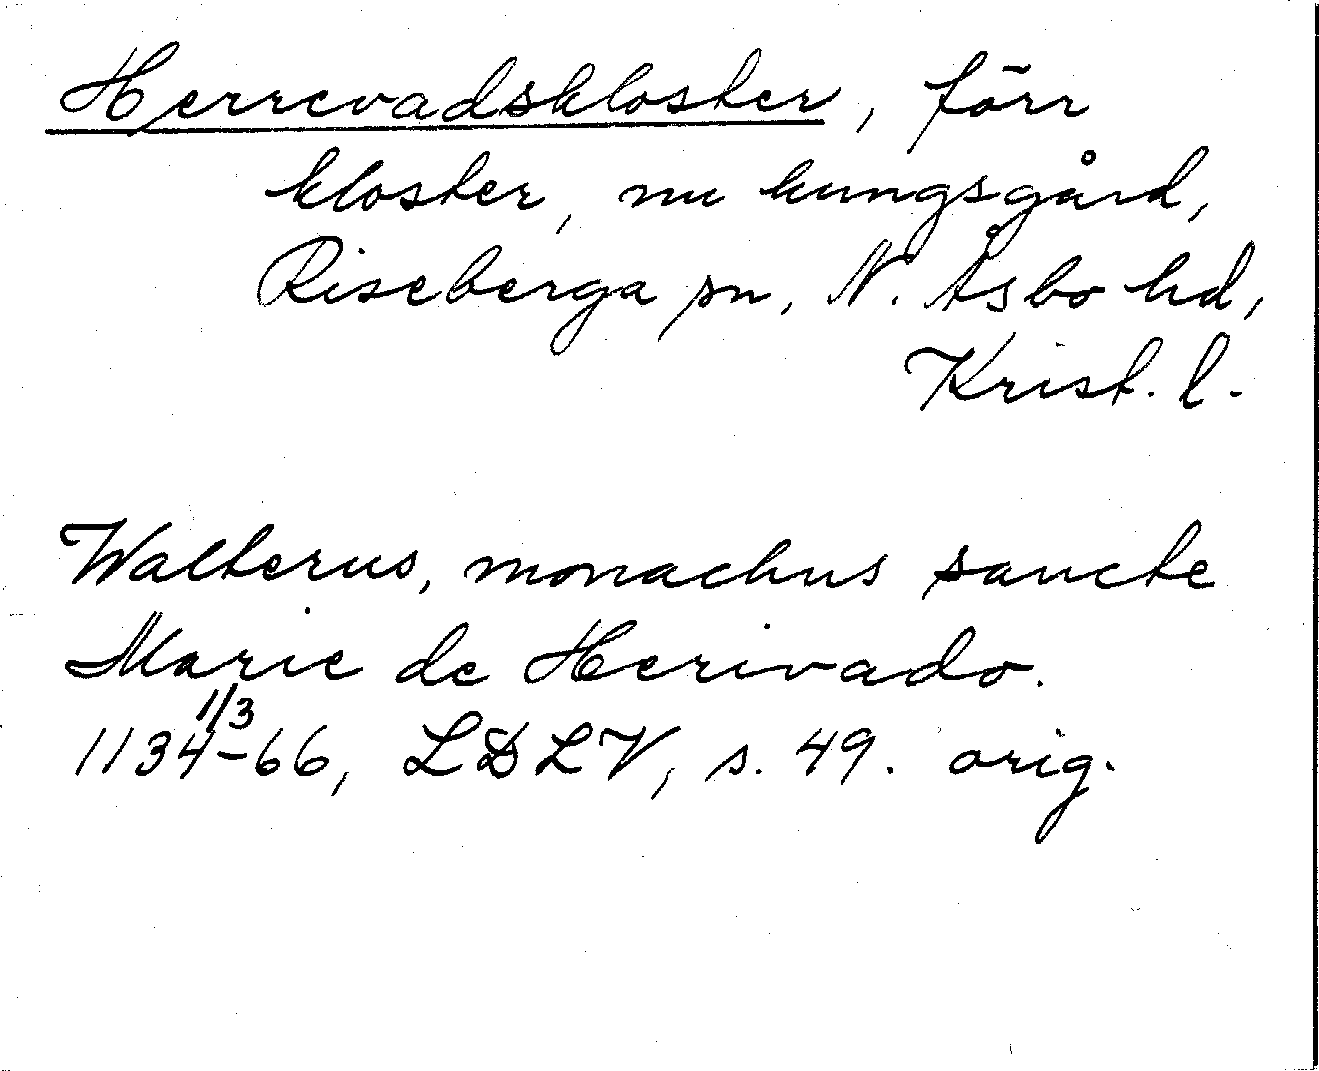 Herrevadskloster, förr
kloster, nu kungsgård,
Riseberga sn, N. Åsbo hd,
Krist. l.
Walterus, monachus sancte
Marie de Herivado.
1134 1/3 -66, LDLV, s. 49. orig.